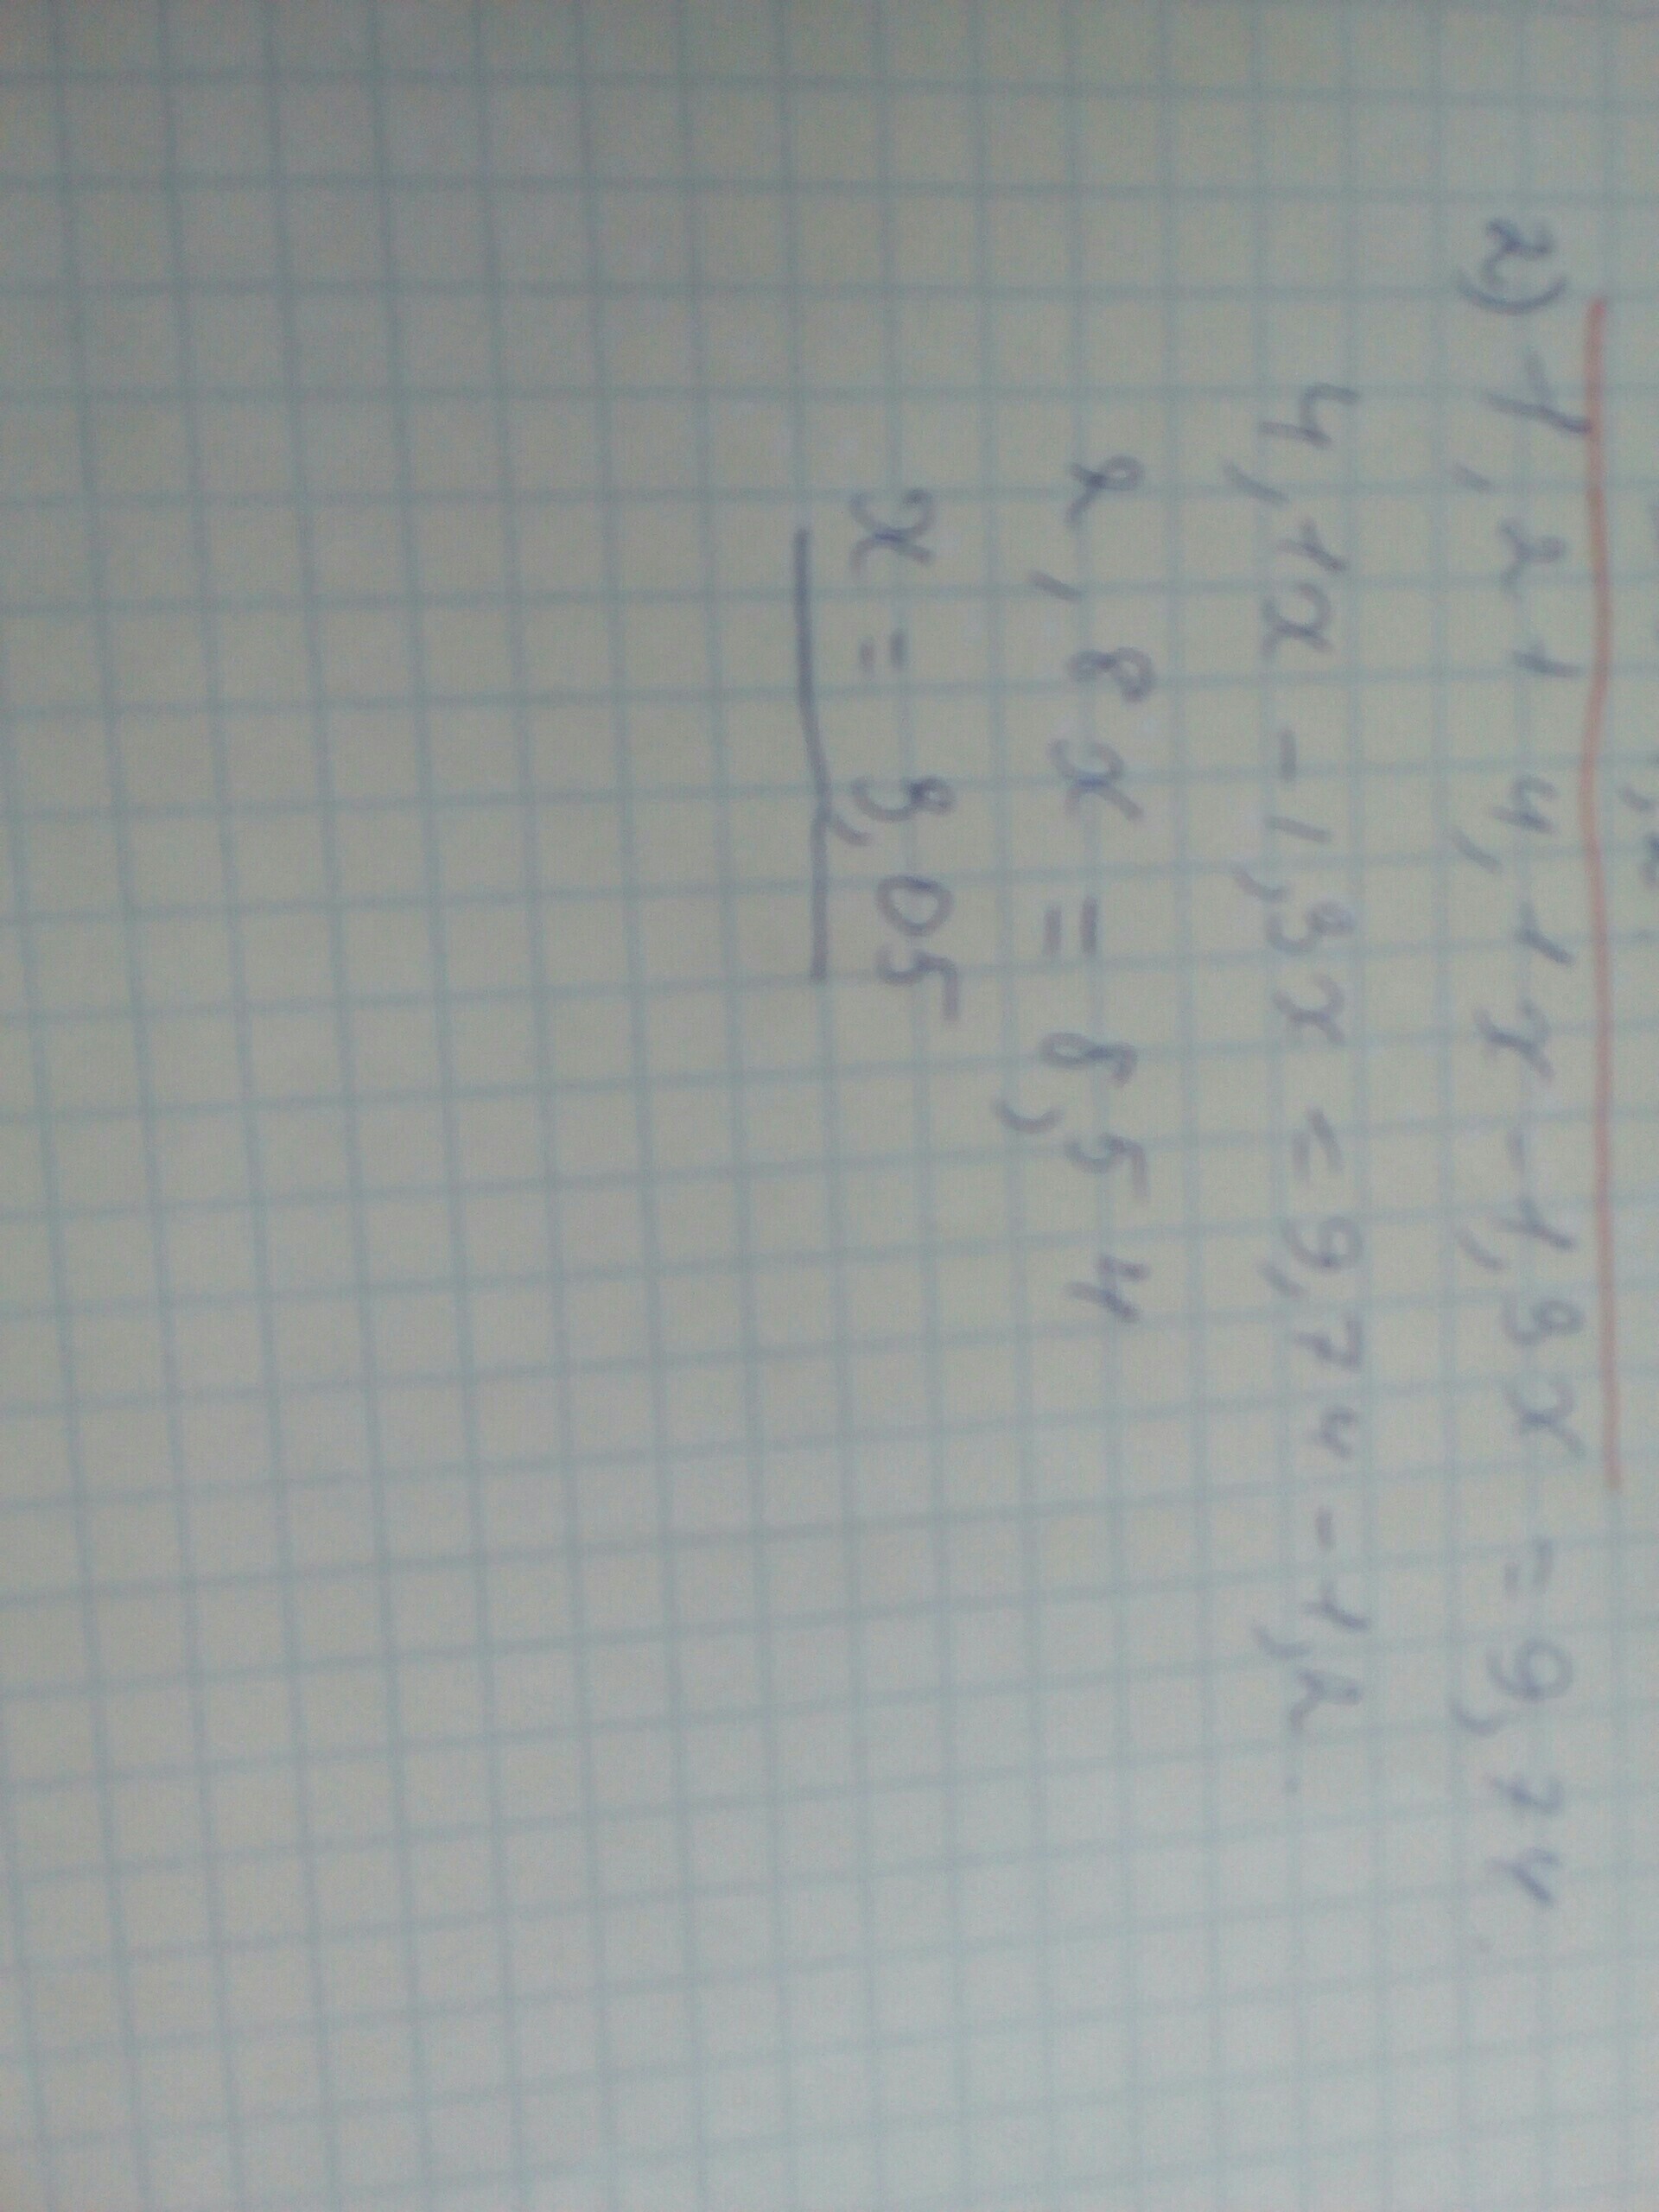 2) 1,2 + 4,1x - 1,3x = 9,74
4,1x - 1,3x = 9,74 - 1,2
2,8x = 8,54
x = 3,05